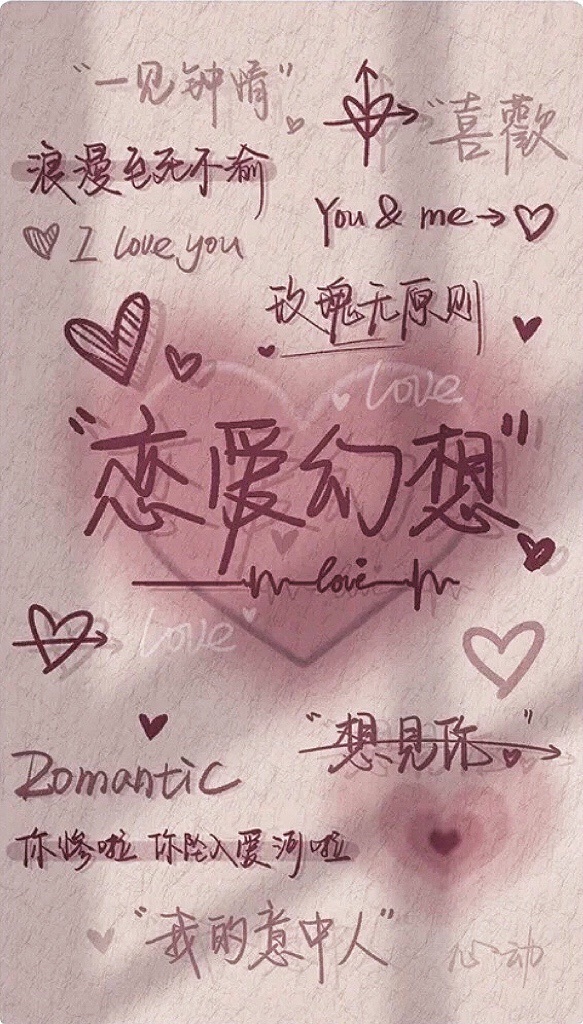 “一见钟情”
“喜歡
浪漫至死不渝
You & me
I love you
玫瑰无原则
love
“恋爱幻想”
love
love
“想见你”
Romantic
你惨啦 你坠入爱河啦
“我的意中人”
心动